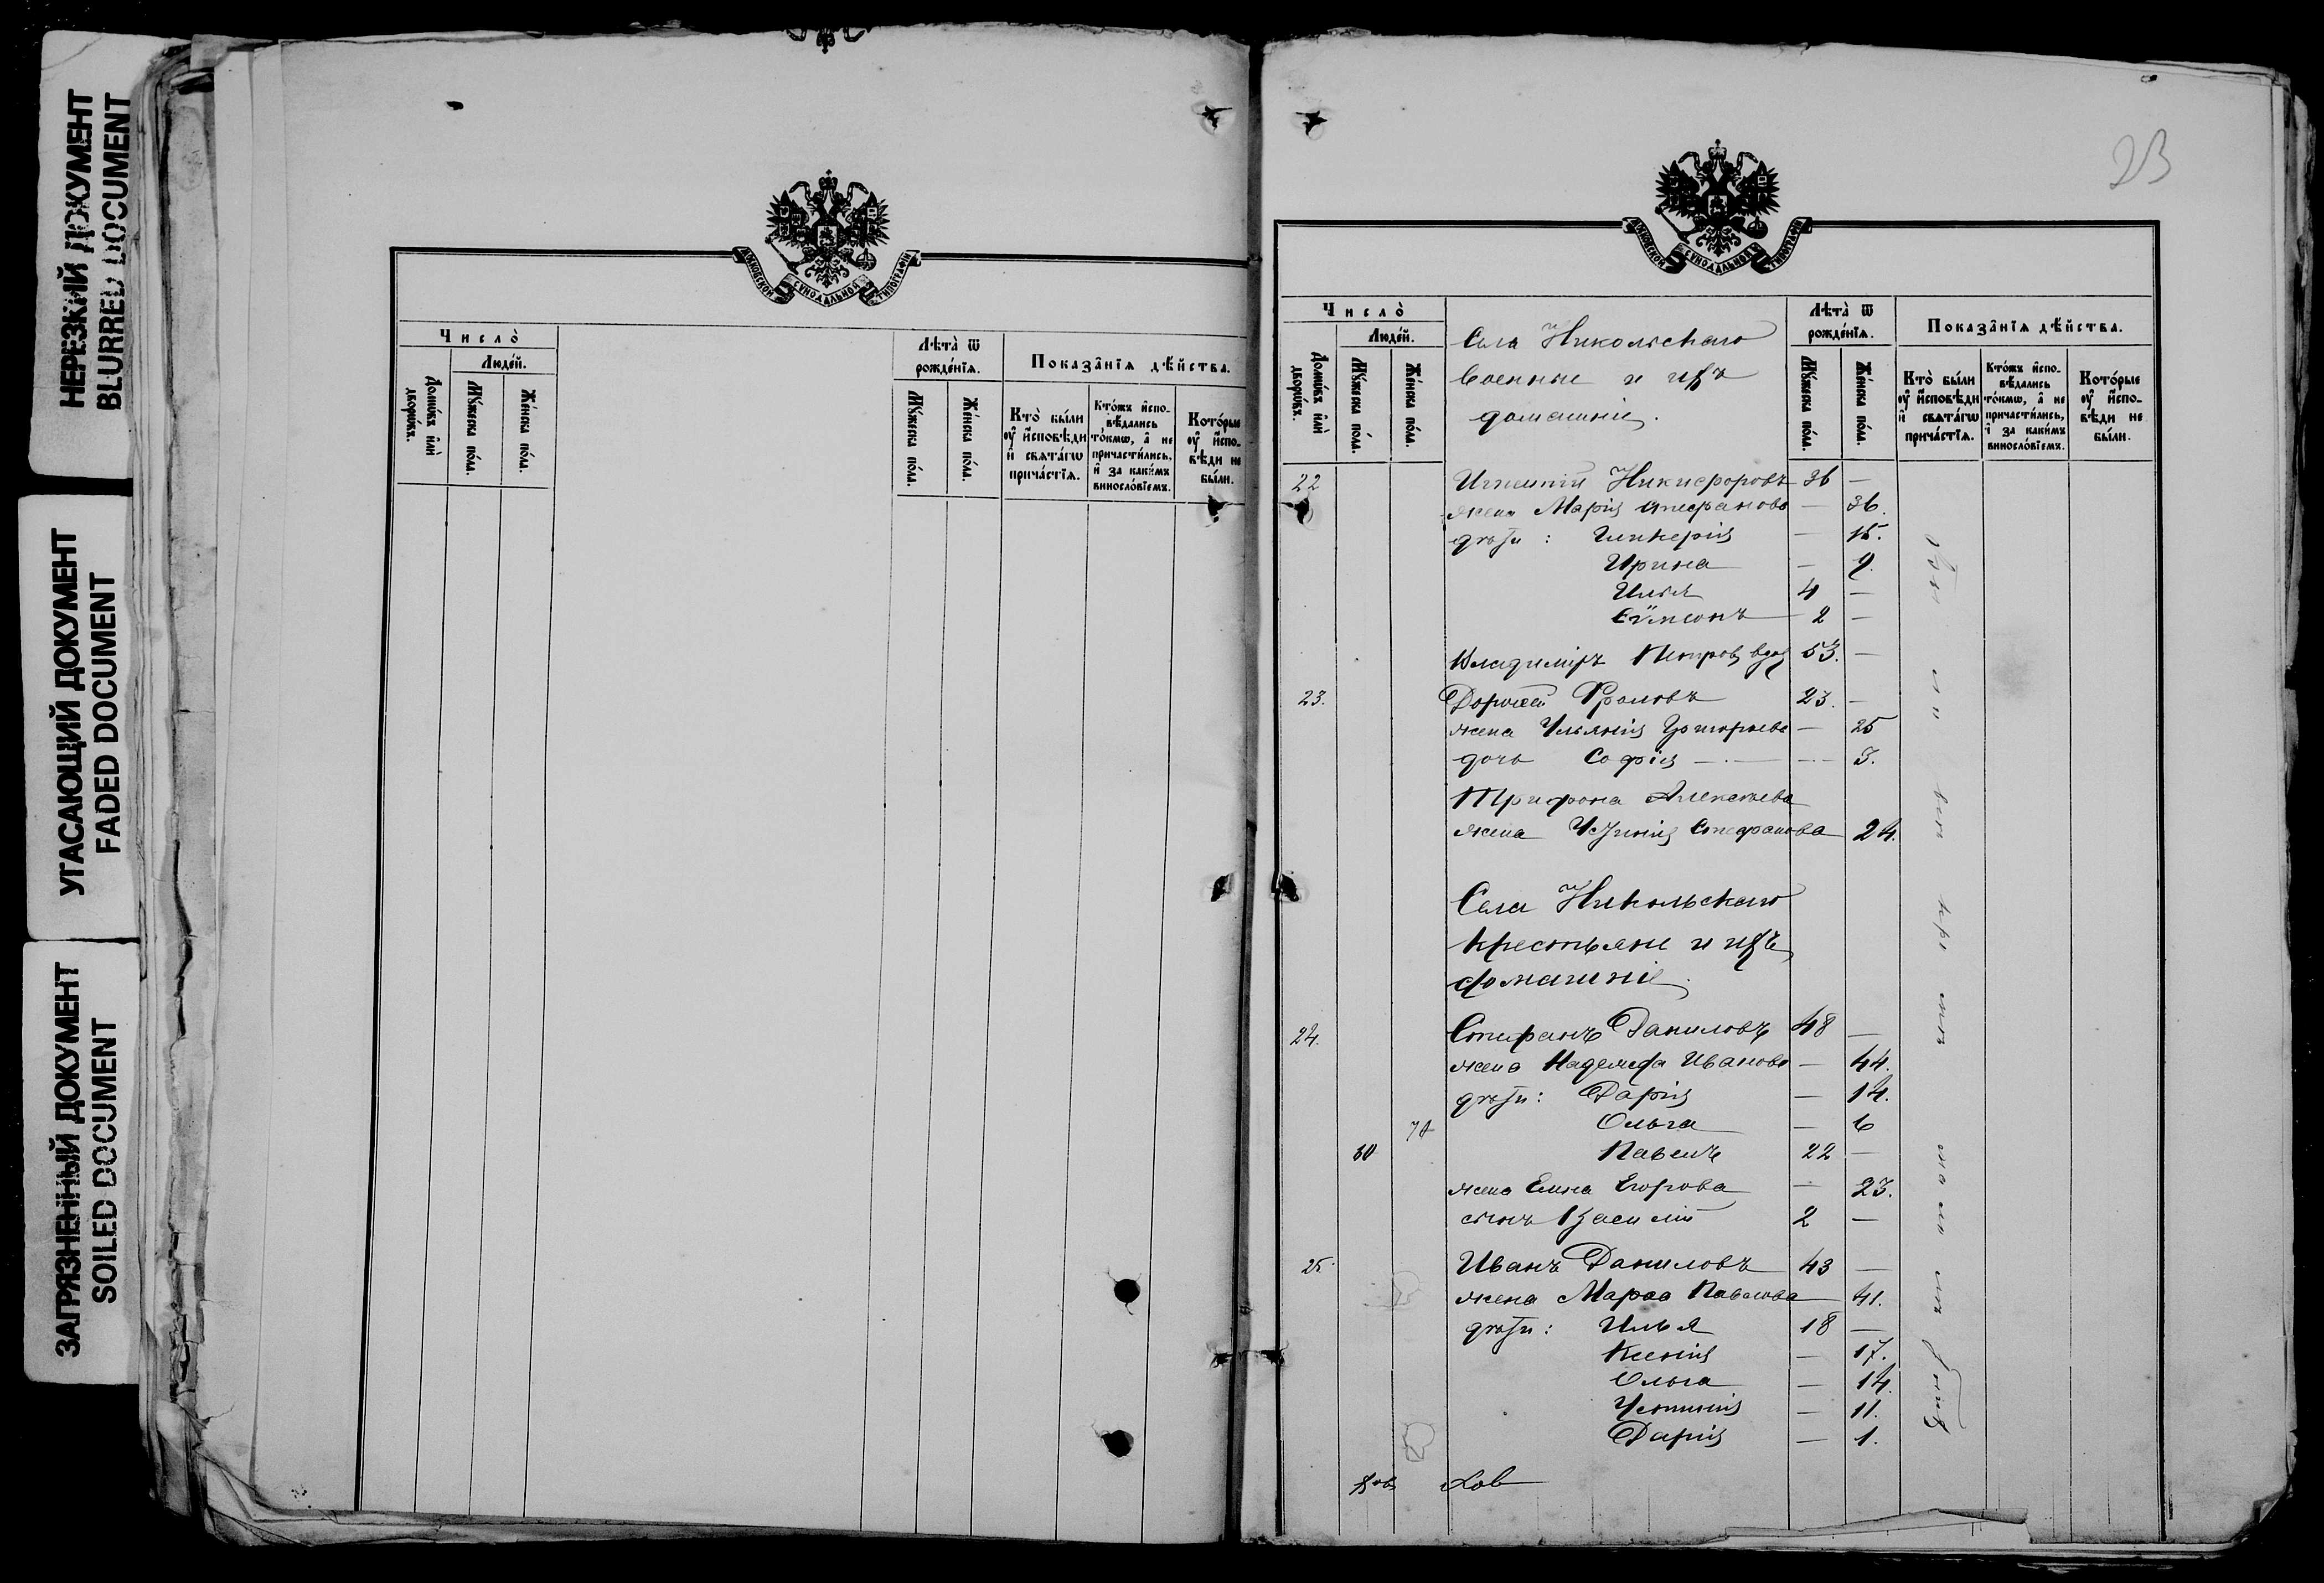 НЕРЕЗКИЙ ДОКУМЕНТ
BLURRED DOCUMENT
УГАСАЮЩИЙ ДОКУМЕНТ
FADED DOCUMENT
ЗАГРЯЗНЕННЫЙ ДОКУМЕНТ
SOILED DOCUMENT
МОСКОВСКОЙ СѴНОДАЛЬНОЙ ТИПОГРАФІИ
Число̀
Люде́й.
Домѡ́въ и҆лѝ дворѡ́въ.
Мꙋ́жеска по́ла.
Же́нска по́ла.
Лѣта̀ ѿ рожде́нїѧ.
Мꙋ́жеска по́ла.
Же́нска по́ла.
Показа̑нїѧ дѣ́йства.
Кто̀ бы́ли оу҆ и҆сповѣ́ди и҆ свѧта́гѡ прича́стїѧ.
Кто́жъ и҆спо-
вѣ́дались
то́кмѡ, а҆ не
причасти́лись,
и҆ за каки́мъ
винослόвїемъ.
Кото́рые оу҆ и҆спо-
вѣ́ди не
бы́ли.
23
МОСКОВСКОЙ СѴНОДАЛЬНОЙ ТИПОГРАФІИ
Число̀
Люде́й.
Домѡ́въ и҆лѝ дворѡ́въ.
Мꙋ́жеска по́ла.
Же́нска по́ла.
Села Никольскаго
военные и ихъ
домашніе.
Лѣта̀ ѿ рожде́нїѧ.
Мꙋ́жеска по́ла.
Же́нска по́ла.
Показа̑нїѧ дѣ́йства.
Кто̀ бы́ли
оу҆ и҆сповѣ́ди
и҆ свѧта́гѡ
прича́стїѧ.
Кто́жъ и҆спо-
вѣ́дались
то́кмѡ, а҆ не
причасти́лись,
и҆ за каки́мъ
винослόвїемъ.
Кото́рые
оу҆ и҆спо-
вѣ́ди не
бы́ли.
22 Игнатій Никифоровъ 36 —
жена Марія Стефанова — 36.
дѣти: Гликерія — 15.
Ирина — 9.
Илья 4 —
Сѵмеонъ 2 —
Владиміръ Петровъ вдов 53. —
23. Дороѳей Фроловъ 23. —
жена Ульянія Григорьева — 25
дочь Софія — 3.
Трифона Алексѣева
жена Устинія Стефанова 24.
Села Никольскаго
крестьяне и ихъ
домашніе.
24. Стефанъ Даниловъ 48 —
жена Надежда Иванова — 44.
дѣти: Дарія — 14.
Ольга — 6
Павелъ 22 —
жена Елена Егорова — 23.
сынъ Василій 2 —
25. Иванъ Даниловъ 43 —
жена Марѳа Павлова 41.
дѣти: Илья 18 —
Ксенія — 17.
Ольга — 14.
Устинія — 11.
Дарія — 1.